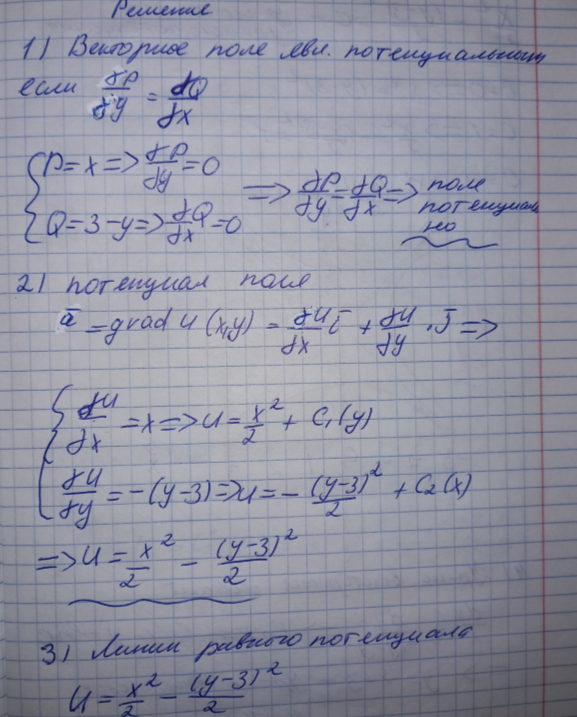 Решение
1) Векторное поле явл. потенциальным
если ∂P/∂y = ∂Q/∂x
{ P = x => ∂P/∂y = 0
{ Q = 3 - y => ∂Q/∂x = 0
=> ∂P/∂y = ∂Q/∂x => поле
потенциаль
но
2) потенциал поля
ā = grad U (x,y) = ∂U/∂x ī + ∂U/∂y · j̄ =>
{ ∂U/∂x = x => U = x²/2 + C₁(y)
{ ∂U/∂y = -(y-3) => U = - (y-3)²/2 + C₂(x)
=> U = x²/2 - (y-3)²/2
3) Линии равного потенциала
U = x²/2 - (y-3)²/2